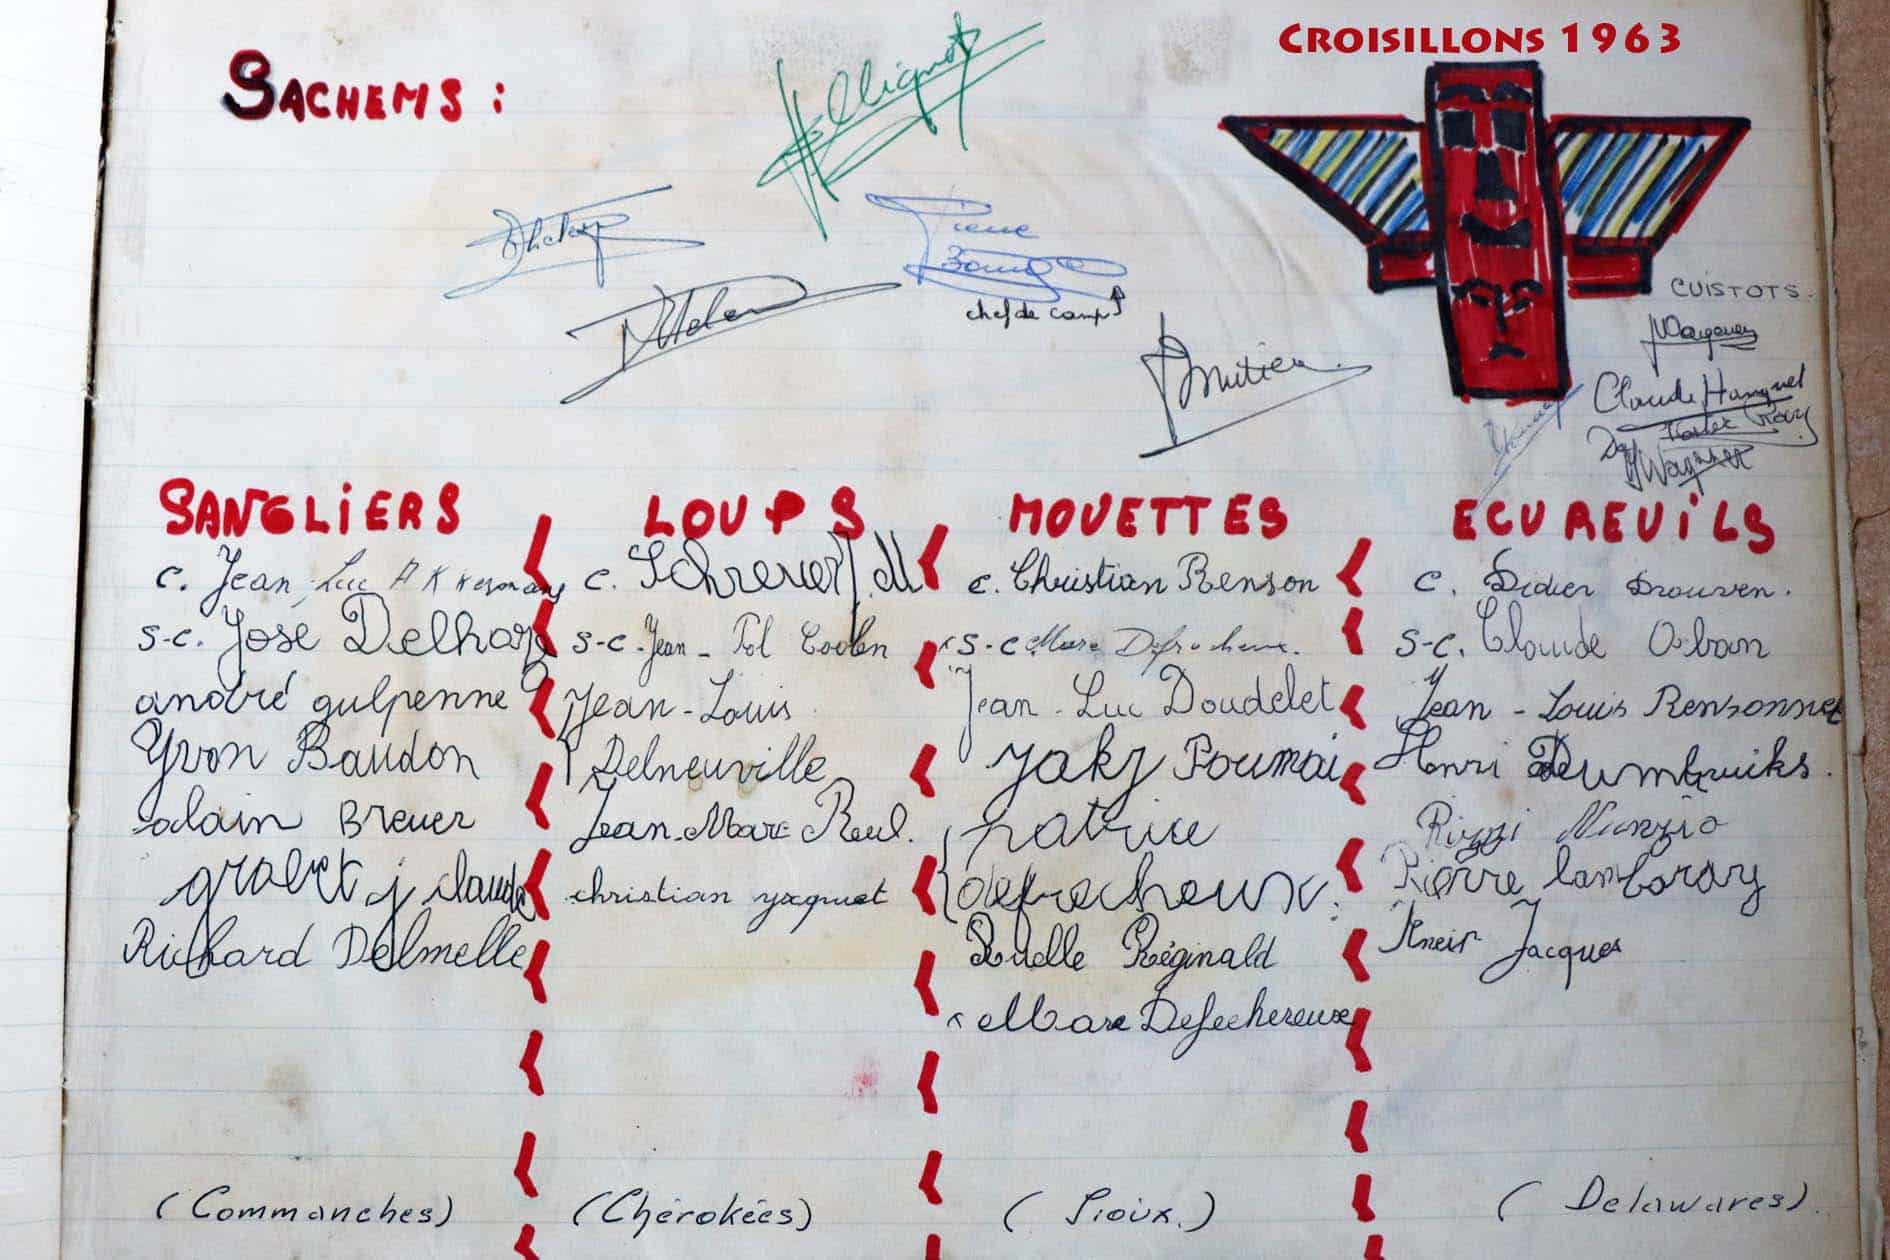 CROISILLONS 1963
SACHEMS :
Pierre
chef de camp
CUISTOTS.
Claude Hanquet
Wagener
SANGLIERS
c. Jean Luc Akkermans
s-c. José Delhop
andré gulpenne
Yvon Baudon
alain Breuer
grolet j claude
Richard Delmelle
(Commanches)
LOUPS
c. Schreuer J.M
s-c. Jean - Pol Coolen
Jean - Louis
Delneuville
Jean-Marc Reul.
christian ysquet
(Chérokées)
MOUETTES
c. Christian Renson
s-c Marc
Jean - Luc Doudelet
Yaky Poumai
patrice
defecheux
Ruelle Réginald
Marc Defechereux
(Sioux.)
ECUREUILS
c. Didier Drouven.
s-c. Claude Orban
Jean - Louis Rensonnet
Henri Deumbruiks.
Rizzi Nunzio
Pierre lamboray
Kneip Jacques
(Delawares)